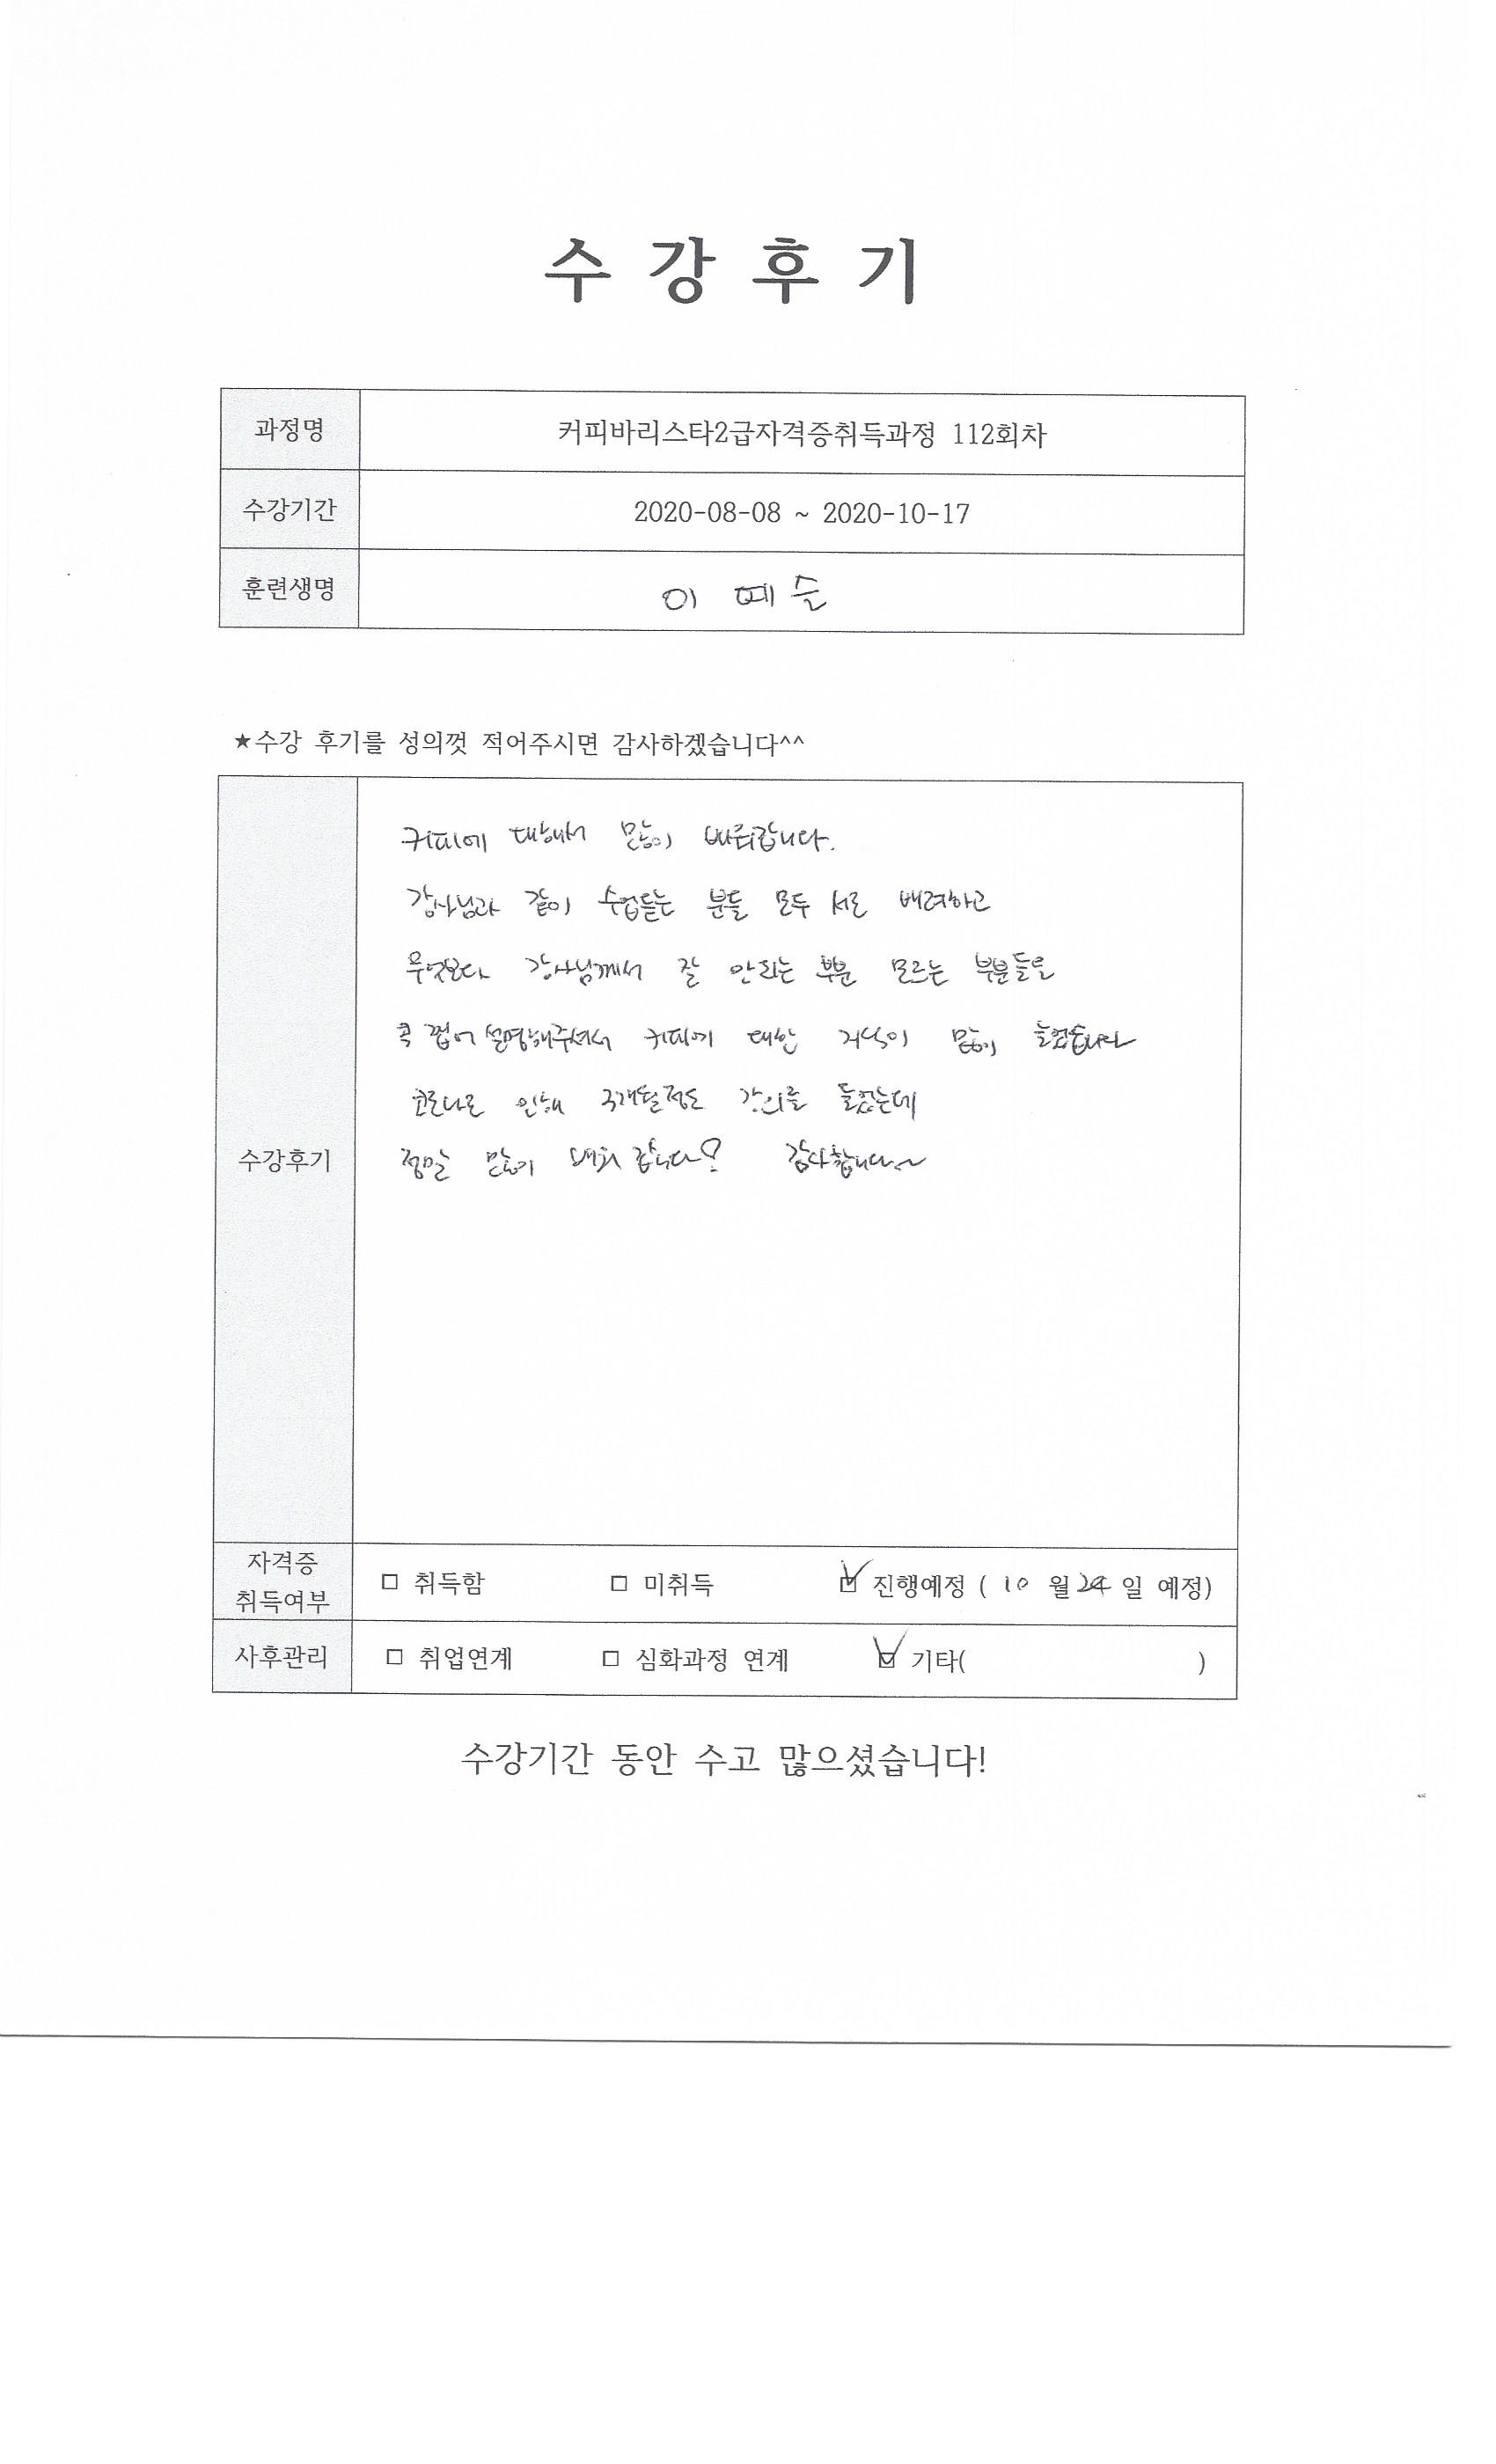 수 강 후 기
과정명 커피바리스타2급자격증취득과정 112회차
수강기간 2020-08-08 ~ 2020-10-17
훈련생명 이 예슬
★수강 후기를 성의껏 적어주시면 감사하겠습니다^^
커피에 대해서 많이 배워갑니다.
강사님과 같이 수업듣는 분들 모두 서로 배려하고
무엇보다 강사님께서 잘 안되는 부분 모르는 부분들을
콕 찝어 설명해주셔서 커피에 대한 지식이 많이 늘었습니다
코로나로 인해 3개월정도 강의를 들었는데
수강후기 정말 많이 배워 갑니다! 감사합니다~
자격증
취득여부 □ 취득함 □ 미취득 ☑ 진행예정 ( 10 월 24 일 예정)
사후관리 □ 취업연계 □ 심화과정 연계 ☑ 기타( )
수강기간 동안 수고 많으셨습니다!